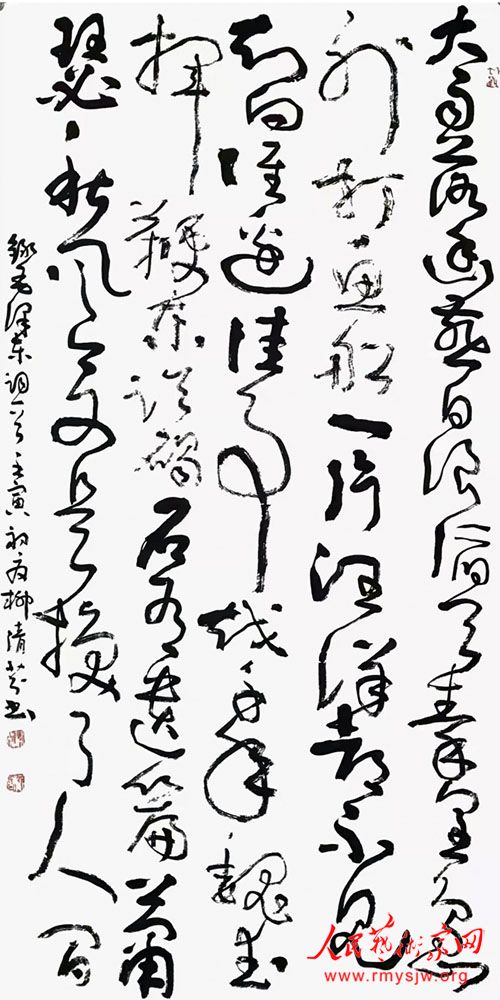 大雨落幽燕白浪滔天秦皇岛
外打鱼船一片汪洋都不见
知向谁边往事越千年魏武
挥鞭东临碣石有遗篇萧
瑟秋风今又是换了人间
录毛泽东词一首壬寅初夏柳清书
人民藝術家网
www.rmysjw.org